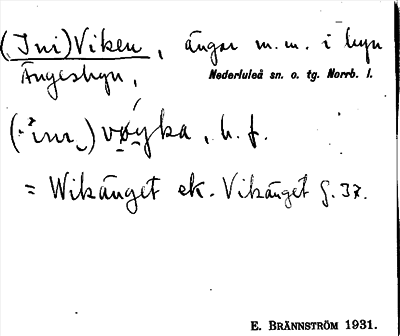 (Ini)Viken, ängar m.m. i byn
Ängesbyn, Nederluleå sn. o. tg. Norrb. l.
(inı)vøyka, b. f.
= Wikänget ek. Vikänget J. 37.
E. BRÄNNSTRÖM 1931.